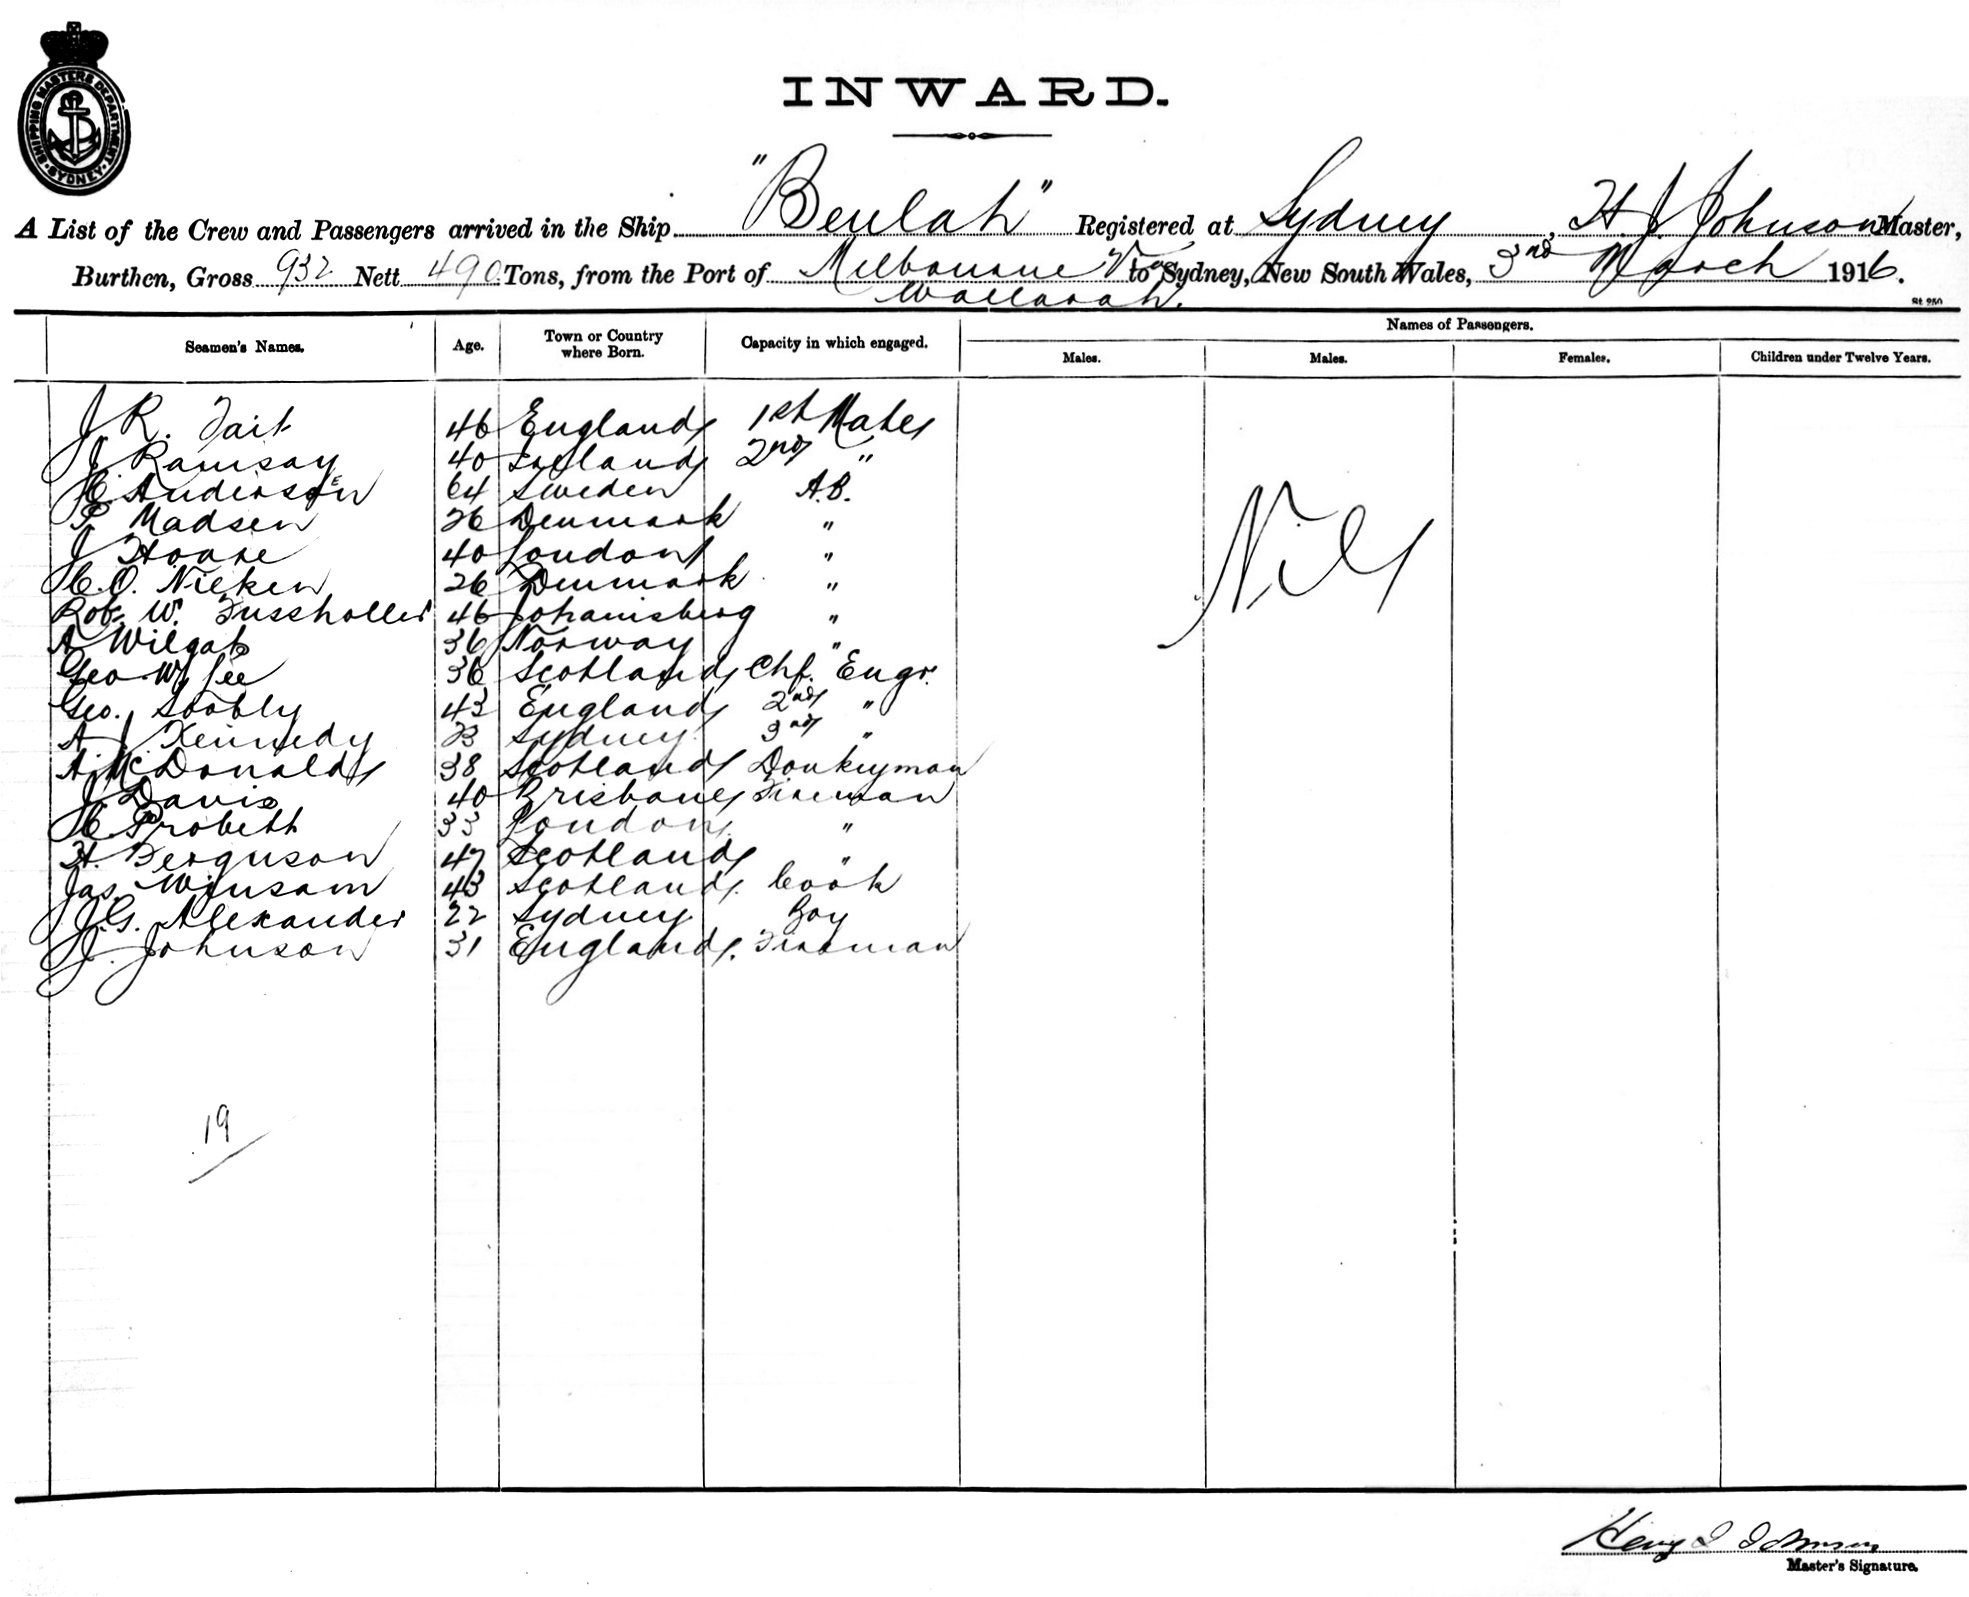 SHIPPING MASTERS DEPARTMENT
SYDNEY
INWARD.
A List of the Crew and Passengers arrived in the Ship "Beulah" Registered at Sydney, H. J. Johnson Master,
Burthen, Gross 932 Nett 490 Tons, from the Port of Melbourne Via to Sydney, New South Wales, 3rd March 1916.
Wallarah.
St 250
Names of Passengers.
Seamen's Names. Age. Town or Country where Born. Capacity in which engaged. Males. Males. Females. Children under Twelve Years.
J R. Tait 46 England 1st Mate
J. Ramsay 40 Ireland 2nd "
C. Andersen 64 Sweden A.B.
P Madsen 26 Denmark "
J Hoare 40 London "
C. O. Nielsen 26 Denmark "
Rob. W. Fussholler 46 Johanisberg "
A Wilgat 36 Norway "
Geo. W. Lee 36 Scotland Chf. Engr.
Geo. Soobly 43 England 2nd "
A J. Kennedy 23 Sydney 3rd "
A. McDonald 38 Scotland Donkeyman
J. Davis 40 Brisbane Fireman
C. Probett 33 London "
H. Ferguson 47 Scotland "
Jas. Winsam 43 Scotland. Cook
J. G. Alexander 22 Sydney Boy
J. Johnson 31 England. Fireman
Nil
19
Henry J Johnson
Master's Signature.